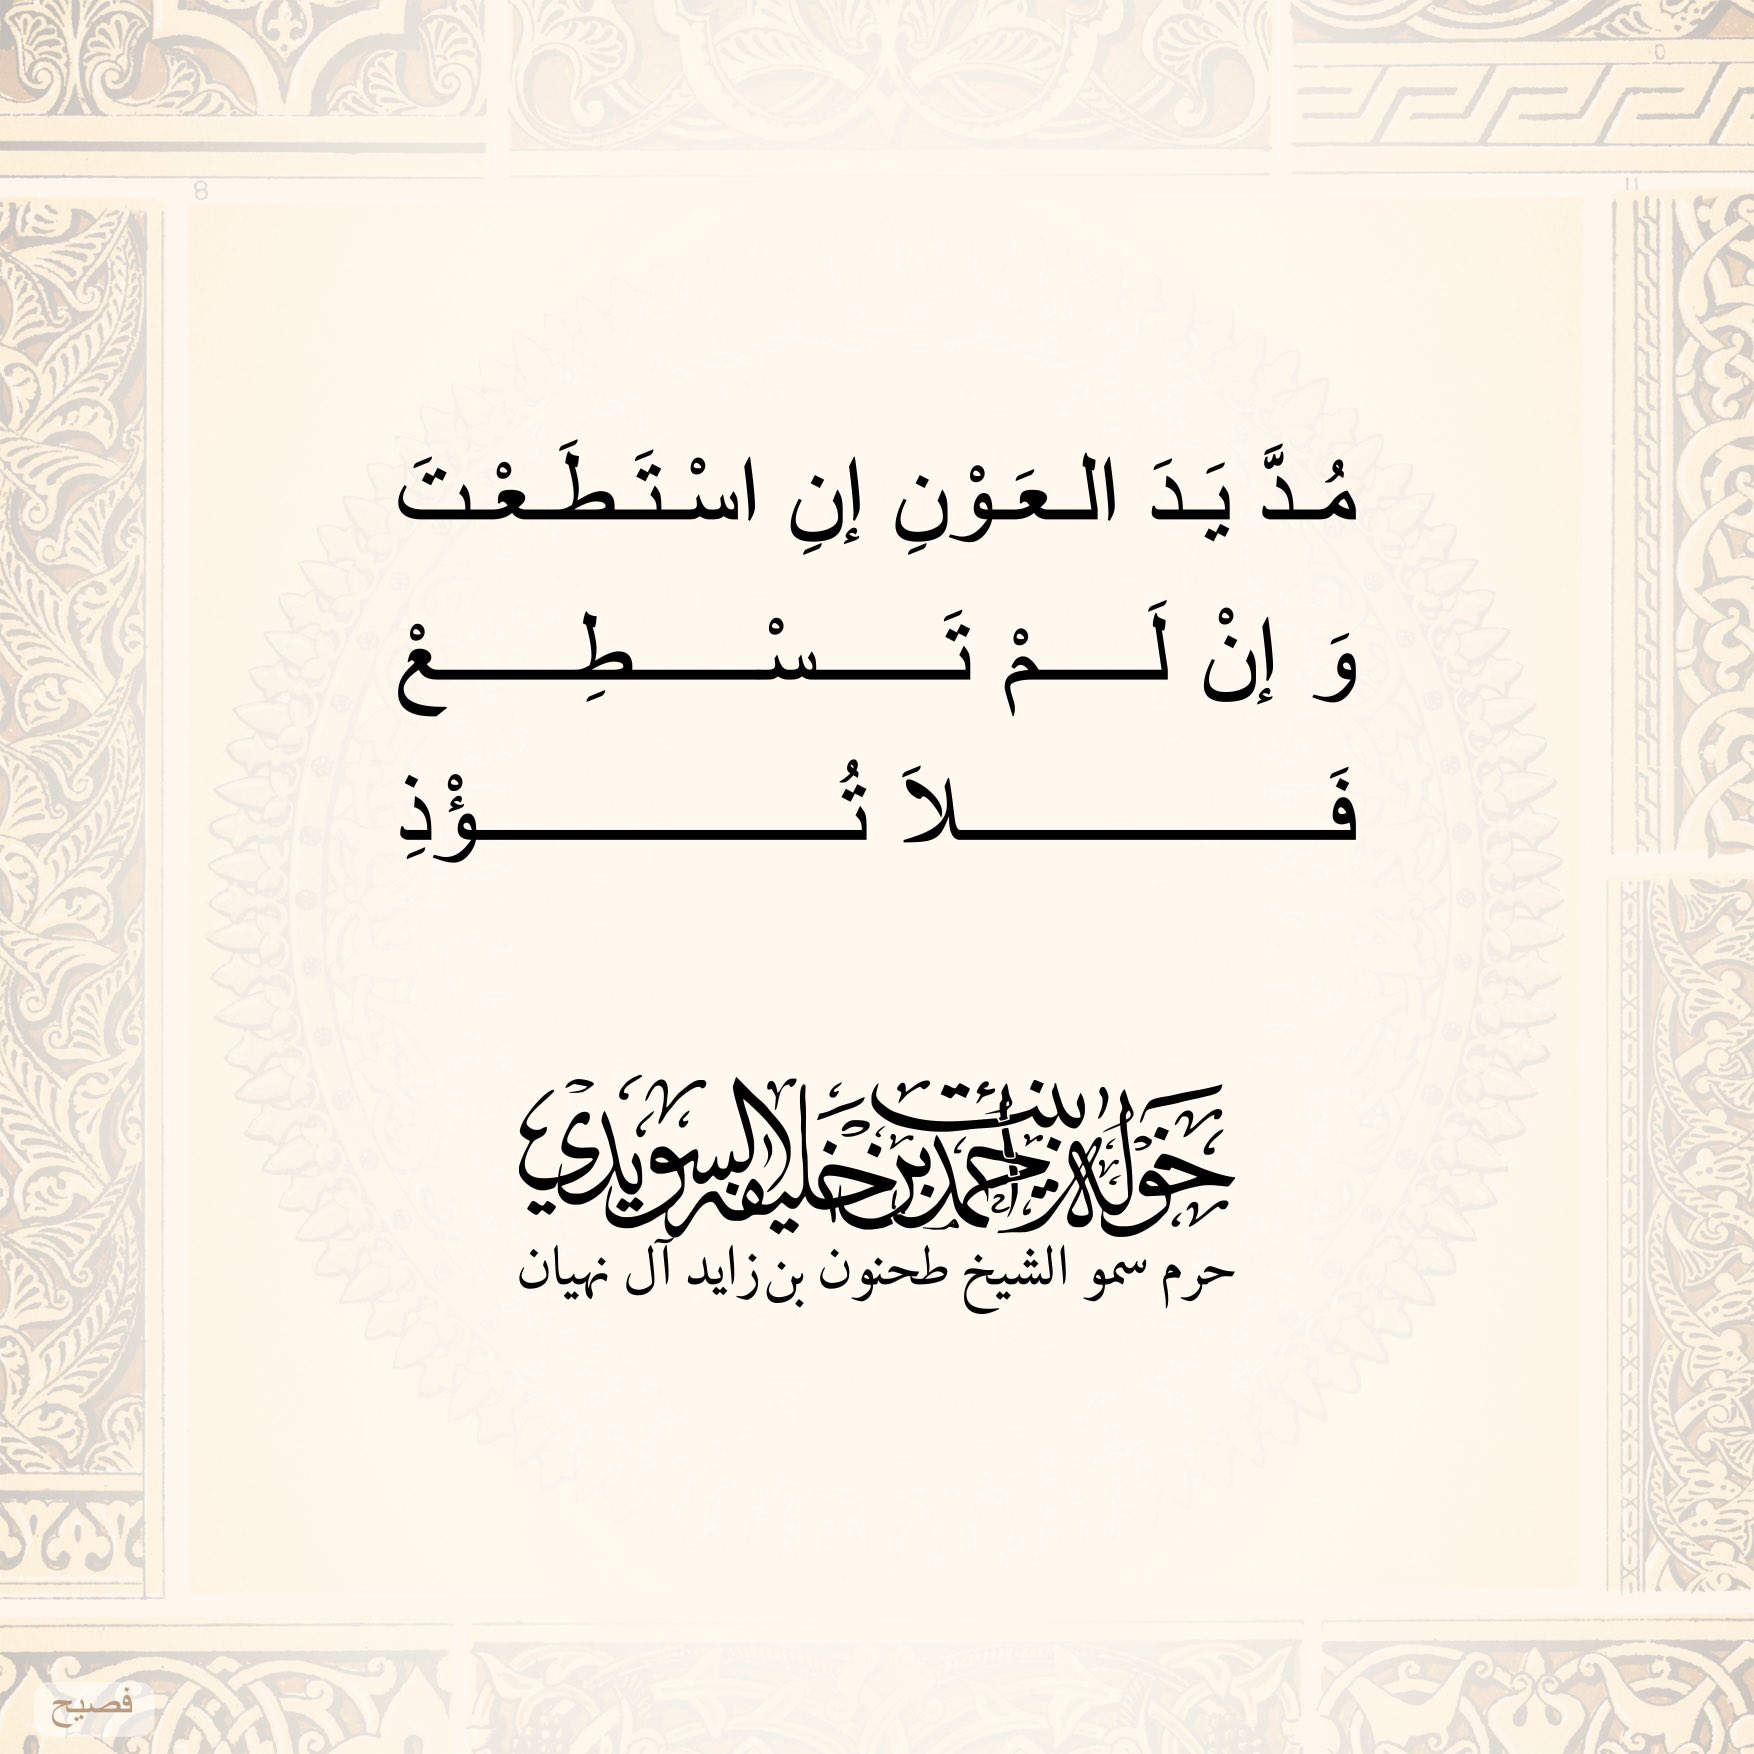 مُدَّ يَدَ العَوْنِ إنِ اسْتَطَعْتَ
وَ إنْ لَمْ تَسْطِعْ
فَلاَ تُؤْذِ
خولة بنت أحمد بن خليفة السويدي
حرم سمو الشيخ طحنون بن زايد آل نهيان
فصيح